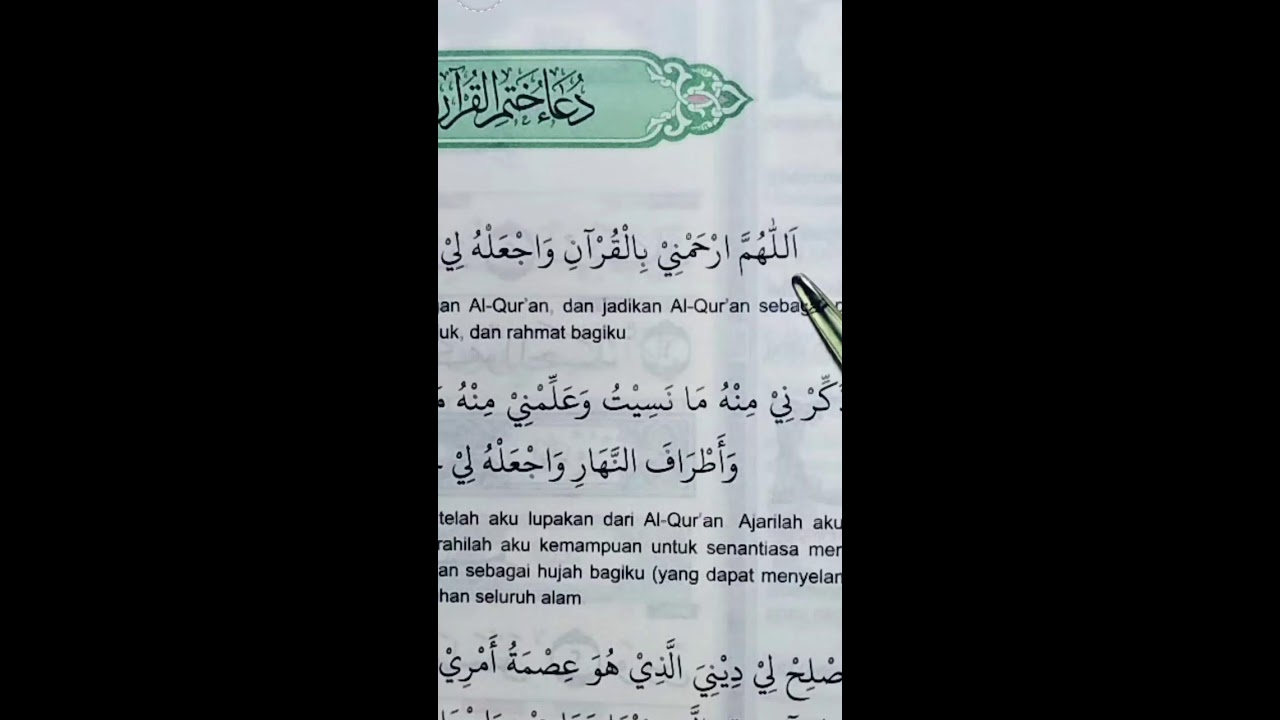 دُعَاءُ خَتْمِ الْقُرْآنِ
اَللّٰهُمَّ ارْحَمْنِيْ بِالْقُرْآنِ وَاجْعَلْهُ لِيْ
an Al-Qur'an, dan jadikan Al-Qur'an
uk, dan rahmat bagiku
نِيْ مِنْهُ مَا نَسِيْتُ وَعَلِّمْنِيْ مِنْهُ
وَأَطْرَافَ النَّهَارِ وَاجْعَلْهُ لِيْ
telah aku lupakan dari Al-Qur'an Ajarilah aku
rahilah aku kemampuan untuk senantiasa mer
an sebagai hujah bagiku (yang dapat menyelan
han seluruh alam
صْلِحْ لِيْ دِيْنِيَ الَّذِيْ هُوَ عِصْمَةُ أَمْرِيْ